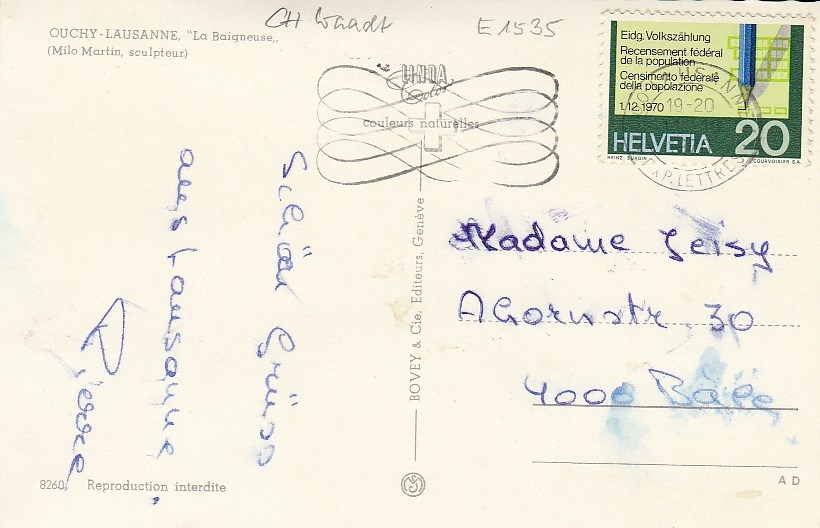 CH Waadt
E 1535
OUCHY-LAUSANNE, "La Baigneuse„
(Milo Martin, sculpteur)
couleurs naturelles
Eidg. Volkszählung
Recensement fédéral
de la population
Censimento federale
della popolazione
1.12.1970
19-20
HELVETIA 20
HEINZ BÜRGIN COURVOISIER S.A.
EXP. LETTRES
Schöni Grüss
aus Lausanne,
Pierre
BOVEY & Cie, Editeurs, Genève
Madame Jeisy
Ahornstr. 30
4000 Bâle
8260 Reproduction interdite
A D